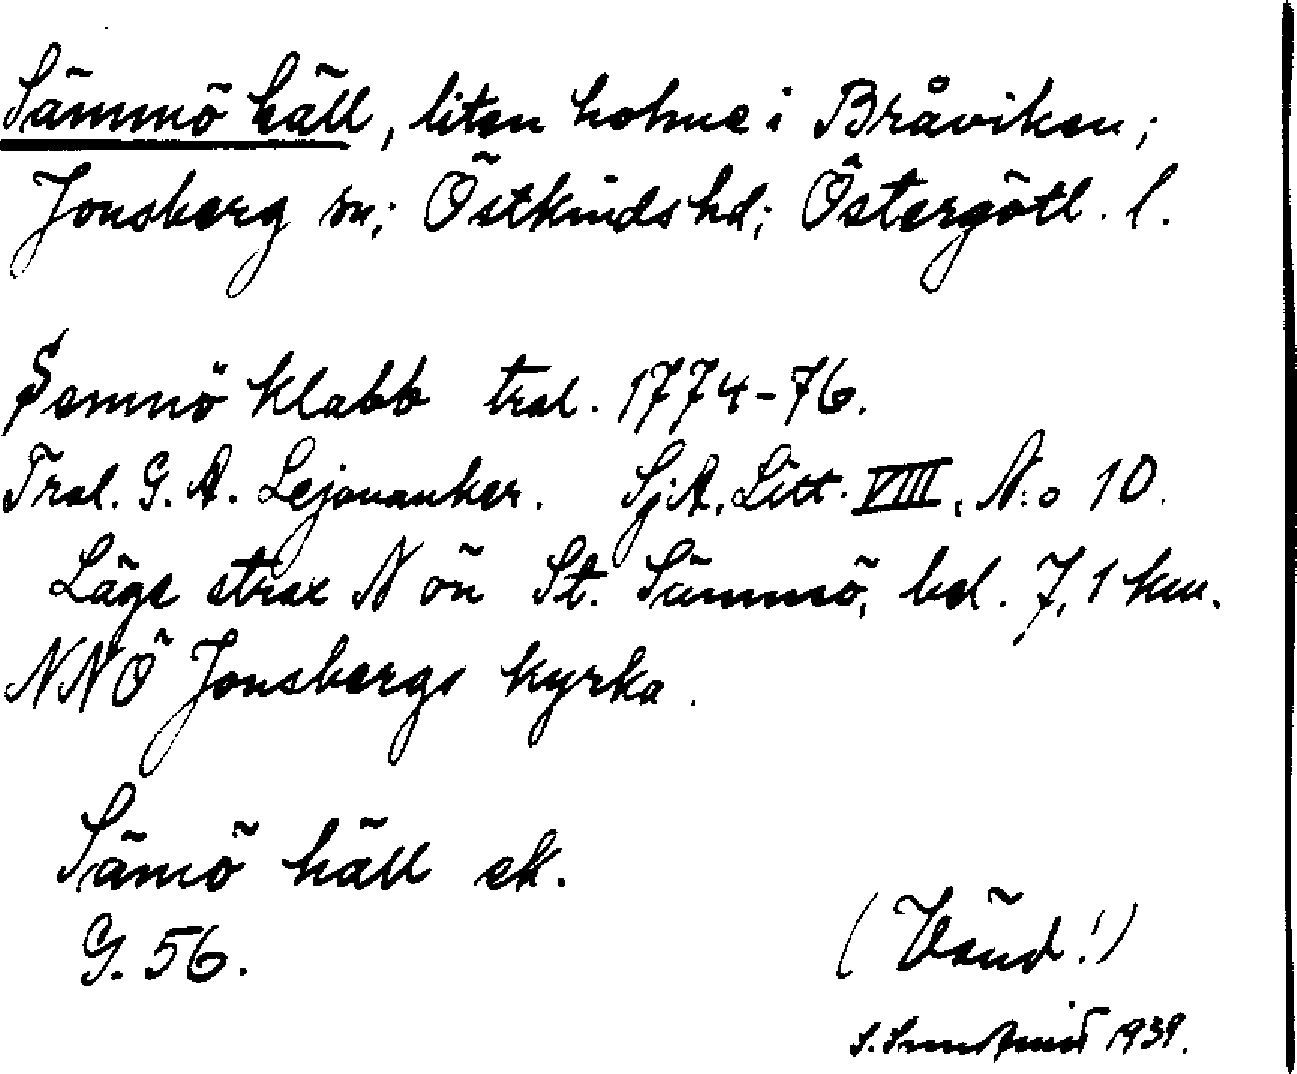 Sämmö häll, liten holme i Bråviken;
Jonsberg sn; Östkinds hd; Östergötl. l.
Semnö klabb tral. 1774-76.
Tral. G. A. Lejonanker. SjA, Litt. VIII, N:o 10.
Läge strax N ön St. Sämmö, bel. 7,1 km.
NNÖ Jonsbergs kyrka.
Sämö häll ek.
G. 56.
(Vänd!)
S. 1939.